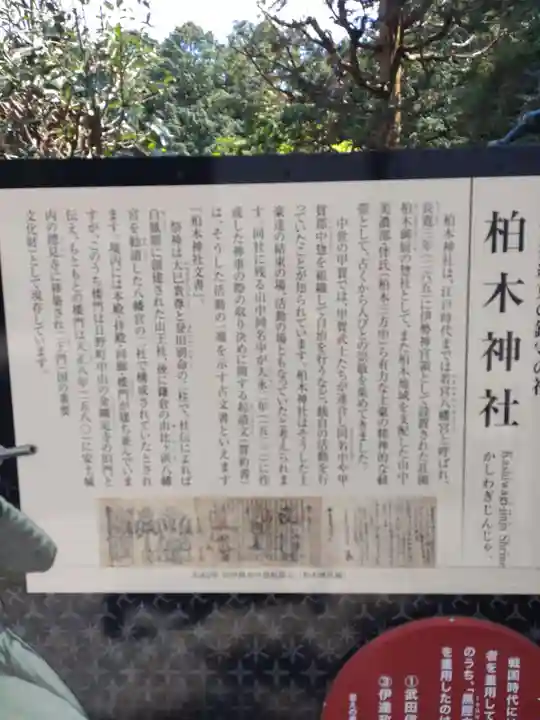 柏木神社
Kashiwagi-jinja Shrine
かしわぎじんじゃ
柏木神社は、江戸時代までは若宮八幡宮と呼ばれ、
長寛三年(一一六五)に伊勢神宮領として設置された荘園
柏木御厨の惣社として、また柏木地域を支配した山中・
美濃部・伴氏(柏木三方中)ら有力な土豪の精神的な紐
帯として、古くから人びとの崇敬を集めてきました。
中世の甲賀では、甲賀武士たちが連合し同名中や甲
賀郡中惣を組織して自治を行うなど、独自の活動を行
っていたことが知られています。柏木神社はそうした土
豪達の結束の場、活動の場ともなっていたと考えられま
す。同社に残る山中同名中が大永二年(一五二二)に作
成した神事の際の取り決めに関する起請文(誓約書)
は、そうした活動の一端を示す古文書といえます
『柏木神社文書』。
祭神は大己貴尊と誉田別命の二柱で、社伝によれば
白鳳期に創建された山王社、後に鎌倉の由比ヶ浜八幡
宮を勧請した八幡宮の二社で構成されていたとされ
ます。境内には本殿・拝殿・回廊・楼門が建ち並んでいま
すが、このうち楼門は日野町中山の金剛定寺の旧門と
伝え、もともとの楼門は天正八年(一五八〇)に安土城
内の摠見寺に移築され(二王門)国の重要
文化財として現存しています。
戦国時代に
者を重用して
のうち、「黒
を重用したのは
①武田信
③伊達政